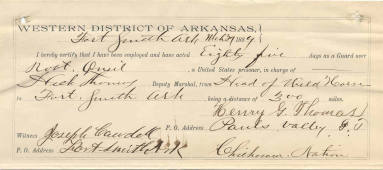 WESTERN DISTRICT OF ARKANSAS,
Fort Smith Ark Mch 1889
I hereby certify that I have been employed and have acted Eighty five days as a Guard over
a United States prisoner, in charge of
Heck Thomas Deputy Marshal, from Head of Wild Horse
to Fort Smith Ark being a distance of 200 miles.
Henry G. Thomas
Witness Joseph P. O. Address Pauls Valley I T
P. O. Address Fort Smith Ark Chickasaw Nation